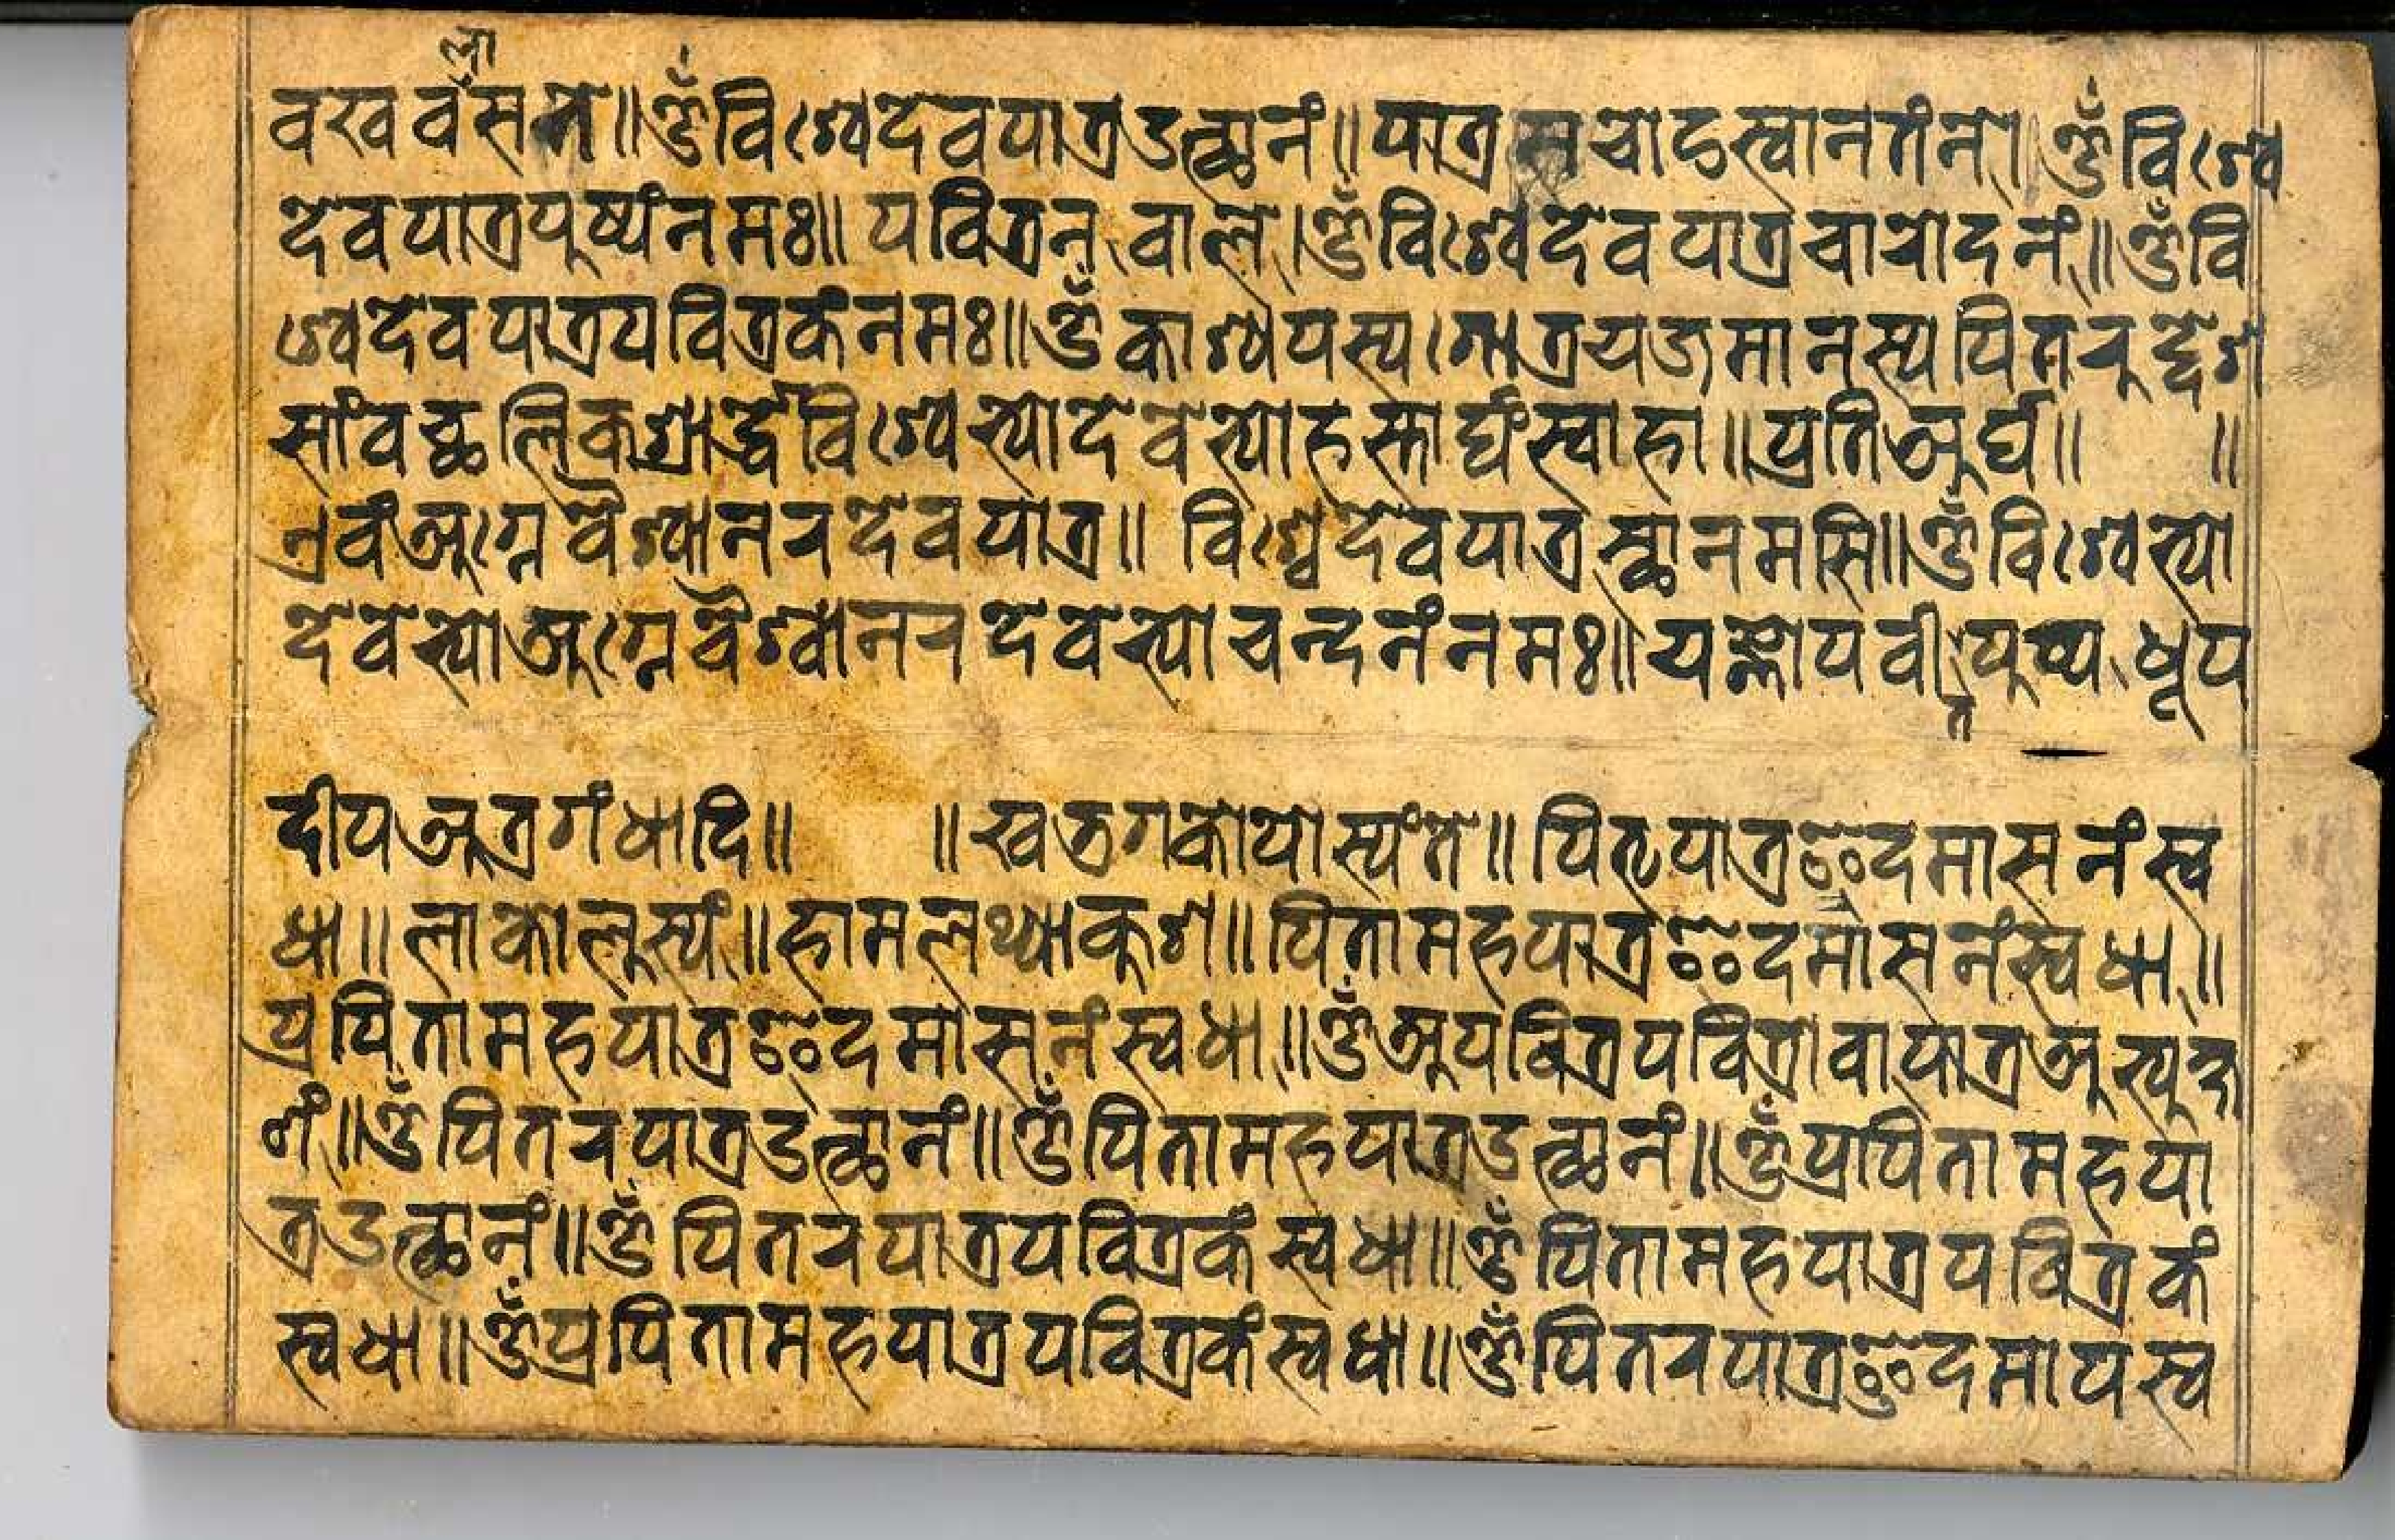 वखवंलासन॥ ॐ विश्वेदेवपात्र उत्छानं॥ पात्र चोद स्वानतंने॥ ॐ विश्वे
देवपात्रपुष्पंनमः॥ पवित्रन वाले॥ ॐ विश्वेदेवपात्रचारोदनं॥ ॐ वि
श्वेदेवपात्रपवित्रकंनमः॥ ॐ काश्यपस्यगोत्रयजमानस्यपितरुद्देश
सांवच्छलिकश्राद्धेविश्वेभ्योदेवभ्योहस्तार्घंस्वाहा॥ प्रतिअर्घ॥ ॥
एवंअग्नेवैश्वानरदेवपात्र॥ विश्वेदेवपात्रस्छानमसि॥ ॐ विश्वेभ्यो
देवभ्योअग्नेवैश्वानरदेवभ्योचन्दनंनमः॥ यज्ञोपवीत पुष्प धूप
दीपअत्रगंधादि॥ ॥ खवतगकोयोस्यंते॥ पितृपात्रइदमासनंस्व
धा॥ लाकोलुस्यं॥ हामलथ्याकुश॥ पितामहपात्रइदमासनंस्वधा॥
प्रपितामहपात्रइदमासनंस्वधा॥ ॐ अपवित्रपवित्रोवापात्रअभ्युक्ष
णं॥ ॐ पितरपात्रउत्छानं॥ ॐ पितामहपात्रउत्छानं॥ ॐ प्रपितामहपा
त्रउत्छानं॥ ॐ पितरपात्रपवित्रकंस्वधा॥ ॐ पितामहपात्रपवित्रकं
स्वधा॥ ॐ प्रपितामहपात्रपवित्रकंस्वधा॥ ॐ पितरपात्रइदमापस्व